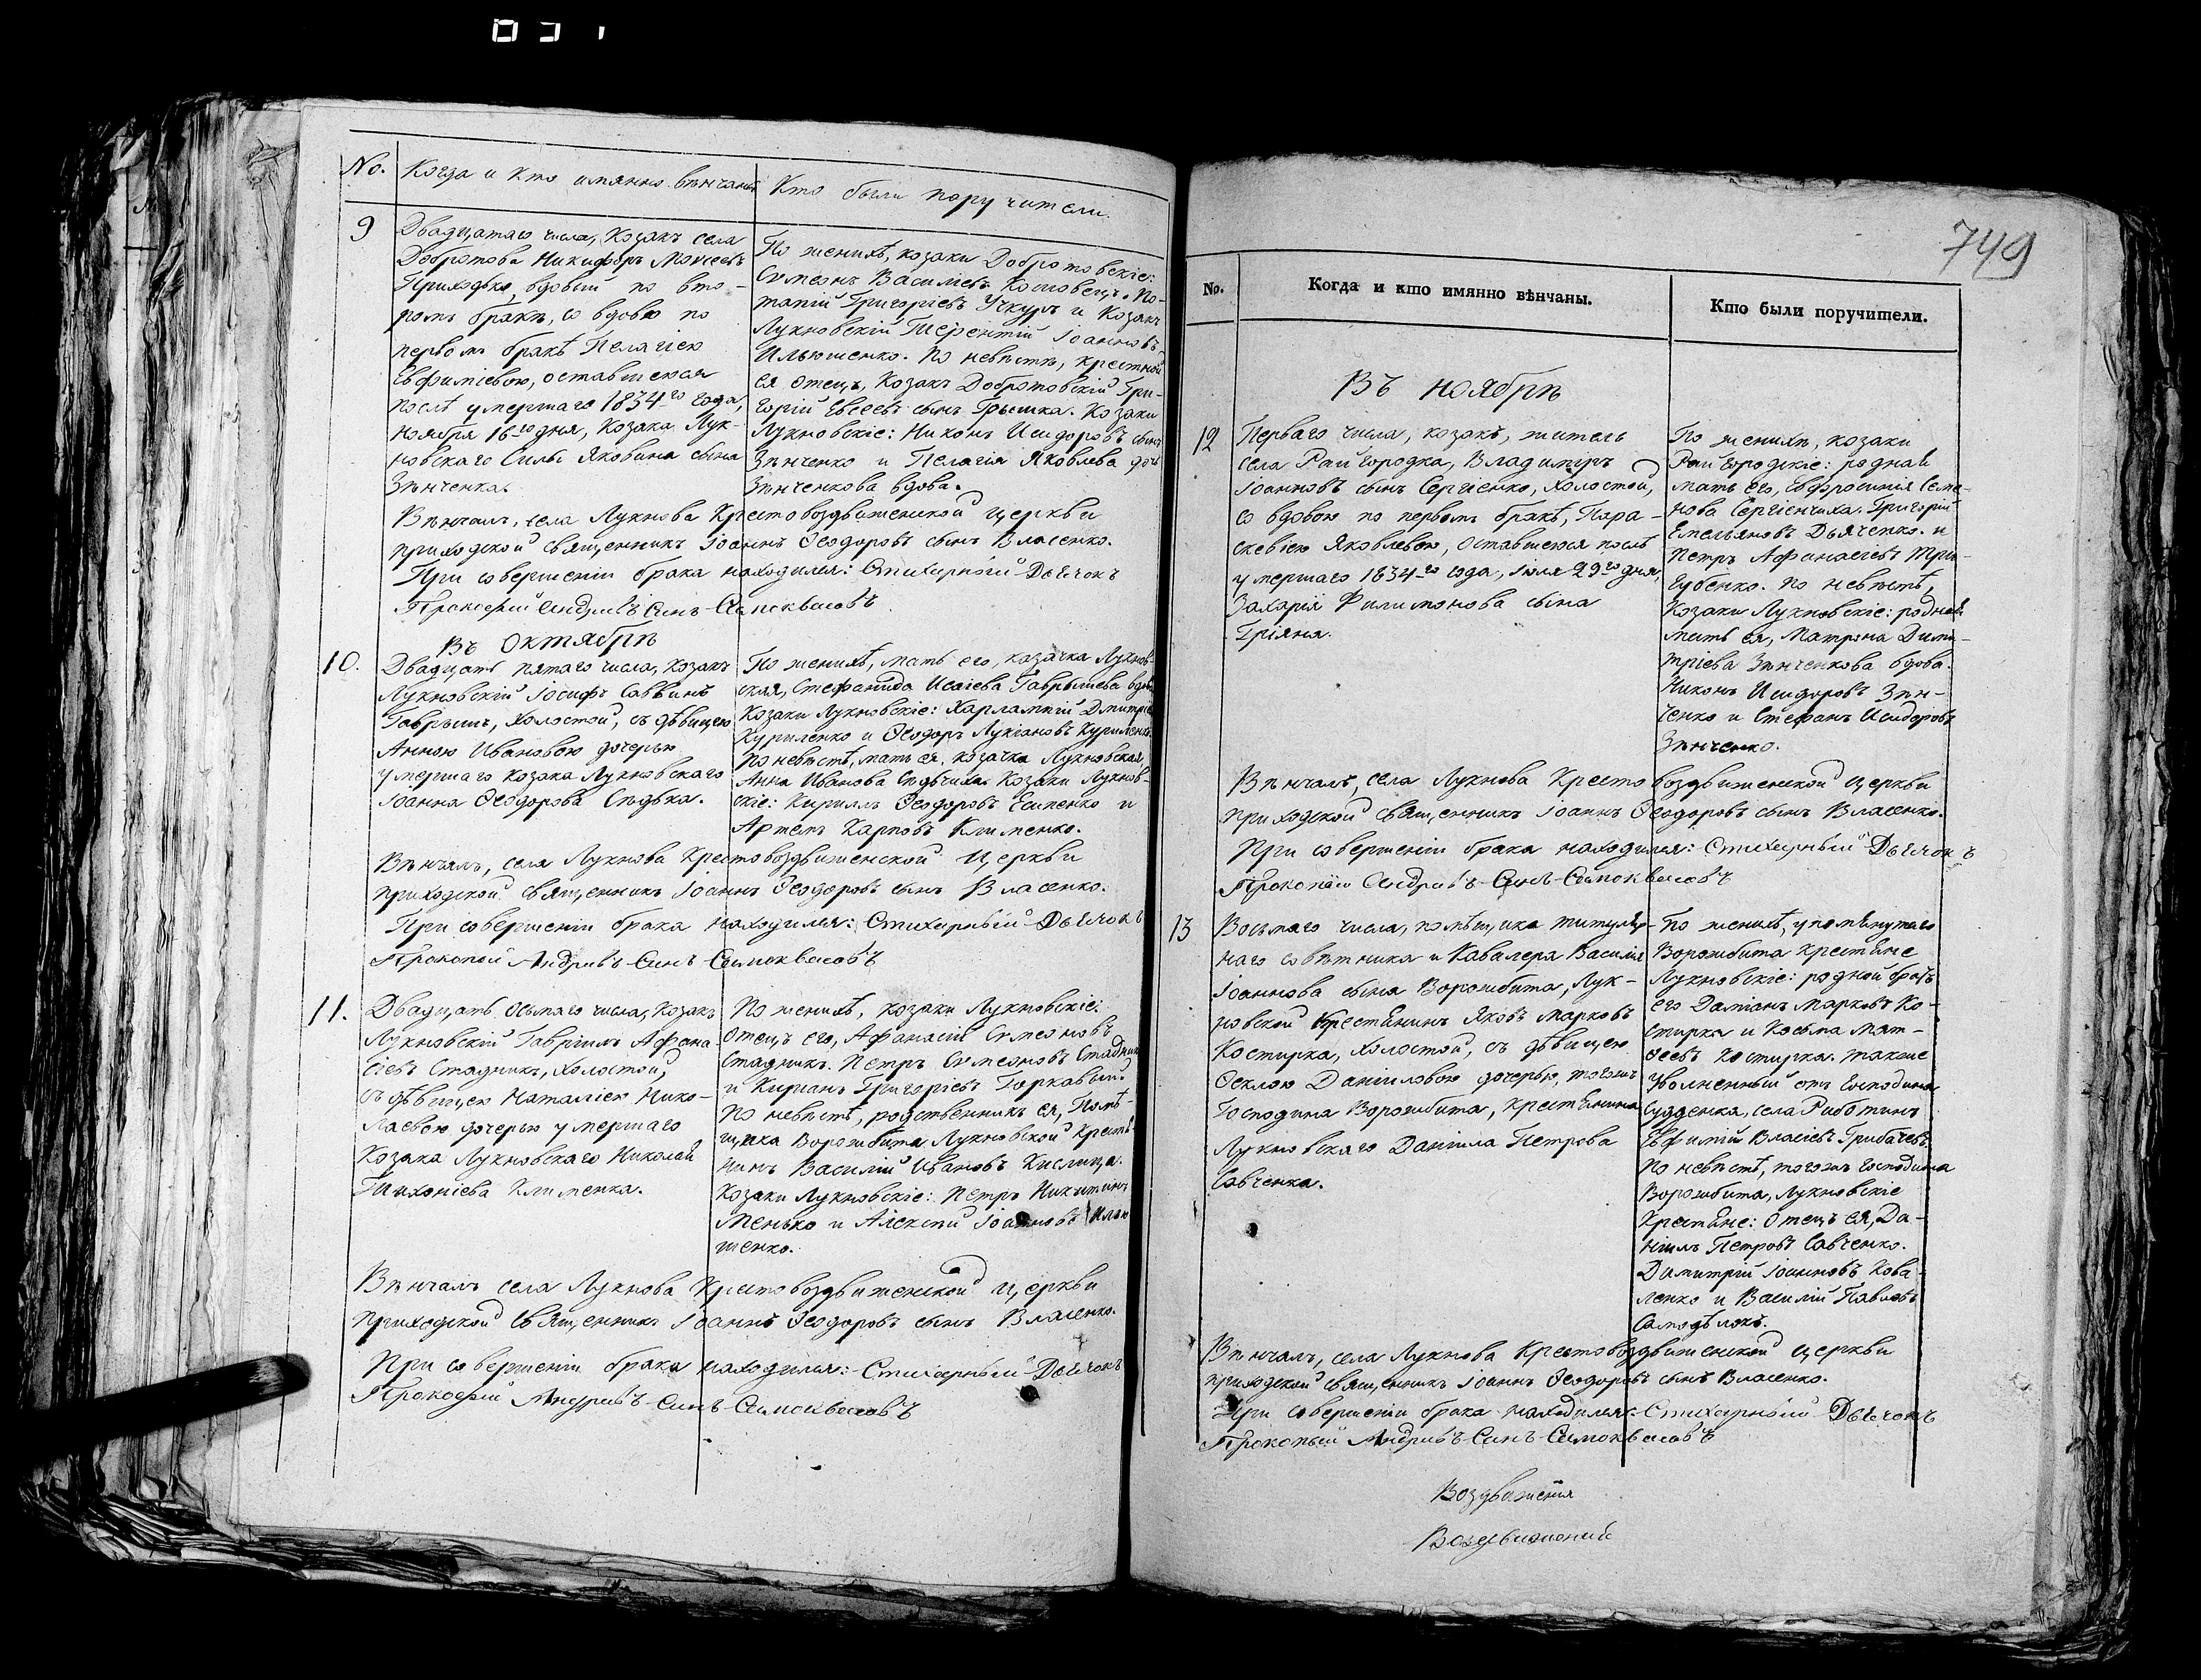 No. Когда и кто имянно вѣнчаны Кто были поручители.
9
Двадцатаго числа, Козакъ села
Добротова Никифоръ Моисеевъ
Приходько, вдовый по вто-
ромъ бракѣ, со вдовою по
первомъ бракѣ Пелагіею
Евфиміевою, оставшеюся
послѣ умершаго 1834-го года,
Ноября 16-го дня, Козака Лук-
новскаго Силы Яковина сына
Зѣнченка.
По женихѣ, козаки Добротовскіе:
Сумеонъ Василіевъ Костовецъ. По-
тапій Григоріевъ Учкуръ и Козакъ
Лукновскій Терентій Іоанновъ
Ильюшенко. По невѣстѣ, крестной
ея отецъ, Козакъ Добротовскій Гри-
горій Евсеевъ сынъ Грышка. Козаки
Лукновскіе: Никонъ Исидоровъ сынъ
Зѣнченко и Пелагія Яковлева дочь
Зѣнченкова вдова.
Вѣнчалъ, села Лукнова Крестовоздвиженской церкви
приходской священникъ Іоаннъ Ѳеодоровъ сынъ Власенко.
При совершеніи брака находился: Стихарный Дьячокъ
Прокофий Андріевъ Синъ Самоквасовъ
Въ Октябрѣ
10.
Двадцать пятаго числа, козакъ
Лукновскій Іосифъ Саввинъ
Гаврышъ, холостой, съ дѣвицею
Анною Ивановою дочерью
умершаго козака Лукновскаго
Іоанна Ѳеодорова Сѣдька.
По женихѣ, мать его, казачка Лукнов-
ская, Стефанида Исаіева Гаврышева вдова
Козаки Лукновскіе: Харлампій Дмитріевъ
Куриленко и Ѳеодоръ Лукіановъ Куриленко.
По невѣстѣ, мать ея, козачка Лукновская,
Анна Иванова Сѣдьчиха. Козаки Лукнов-
скіе: Кирилъ Ѳеодоровъ Есипенко и
Артемъ Карповъ Клименко.
Вѣнчалъ, села Лукнова Крестовоздвиженской церкви
приходской священникъ Іоаннъ Ѳеодоровъ сынъ Власенко.
При совершеніи брака находился: Стихарный Дьячокъ
Прокопій Андріевъ Синъ Самоквасовъ
11.
Двадцать осьмаго числа, Козакъ
Лукновскій Гавріилъ Афана-
сіевъ Стадникъ, холостой,
съ дѣвицею Наталіею Нико-
лаевою дочерью умершаго
Козака Лукновскаго Николай
Тихоніева Клименка.
По женихѣ, козаки Лукновскіе:
отецъ его, Афанасій Сумеоновъ
Стадникъ. Петръ Сумеоновъ Стадникъ
и Киріанъ Григоріевъ Горкавый.
По невѣстѣ, родственникъ ея, Помѣ-
щика Ворожбита Лукновской Крестья-
нинъ Василій Ивановъ Кислица.
Козаки Лукновскіе: Петръ Никитинъ
Менько и Алексій Іоанновъ Илью-
шенко.
Вѣнчалъ села Лукнова Крестовоздвиженской церкви
приходской священникъ Іоаннъ Ѳеодоровъ сынъ Власенко.
При совершеніи брака находился: Стихарный Дьячокъ
Прокофій Андріевъ Синъ Самоквасовъ
749
No. Когда и кто имянно вѣнчаны. Кто были поручители.
Въ Ноябрѣ
12
Перваго числа, козакъ, житель
села Райгородка, Владиміръ
Іоанновъ сынъ Сергіенко, холостой,
со вдовою по первомъ бракѣ, Пара-
скевіею Яковлевою, оставшеюся послѣ
умершаго 1834-го года, Іюля 29-го дня,
Захарія Филимонова сына
Гріяня.
По женихѣ, козаки
Райгородскіе: родная
мать его, Евфросинія Семе-
нова Сергіенчиха. Григорій
Емельяновъ Дьяченко. и
Петръ Афанасіевъ Три-
губенко. По невѣстѣ,
Козаки Лукновскіе: родная
мать ея, Матрона Дими-
тріева Зѣнченкова вдова.
Никонъ Исидоровъ Зѣн-
ченко и Стефанъ Исидоровъ
Зѣнченко.
Вѣнчалъ, села Лукнова Крестовоздвиженской церкви
приходской священникъ Іоаннъ Ѳеодоровъ сынъ Власенко.
При совершеніи брака находился: Стихарный Дьячокъ
Прокопій Андріевъ Синъ Самоквасовъ
13
Восьмаго числа, помѣщика титуляр-
наго совѣтника и Кавалера Василія
Іоаннова сына Ворожбита, Лук-
новской Крестьянинъ Яковъ Марковъ
Костирка, холостой, съ дѣвицею
Ѳеклою Даніиловою дочерью, тогожъ
Господина Ворожбита, крестьянина
Лукновскаго Даніила Петрова
Савченка.
По женихѣ, упомянутаго
Ворожбита крестьяне
Лукновскіе: родной братъ
его Даміанъ Марковъ Ко-
стирка и Косьма Мат-
ѳеевъ Костирка. также
Уволненный отъ Господина
Судденка, села Риботинъ
Евфимій Власіевъ Грибачевъ
По невѣстѣ, тогожъ господина
Ворожбита, Лукновскіе
Крестьяне: отецъ ея, Да-
ніилъ Петровъ Савченко.
Димитрій Іоанновъ Кова-
ленко и Василій Павловъ
Самодѣлокъ.
Вѣнчалъ, села Лукнова Крестовоздвиженской церкви
приходской священникъ Іоаннъ Ѳеодоровъ сынъ Власенко.
При совершеніи брака находился: Стихарный Дьячокъ
Прокопый Андріевъ Синъ Самоквасовъ
Воздвиженія